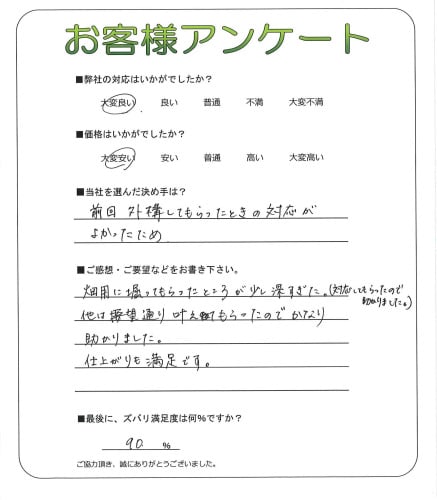 お客様アンケート
■弊社の対応はいかがでしたか?
大変良い 良い 普通 不満 大変不満
■価格はいかがでしたか?
大変安い 安い 普通 高い 大変高い
■当社を選んだ決め手は?
前回外構してもらったときの対応が
よかったため
■ご感想・ご要望などをお書き下さい。
畑用に掘ってもらったところが少し深すぎた。(対応してもらったので
助かりました。)
他は要望通り叶えてもらったのでかなり
助かりました。
仕上がりも満足です。
■最後に、ズバリ満足度は何%ですか?
90 %
ご協力頂き、誠にありがとうございました。